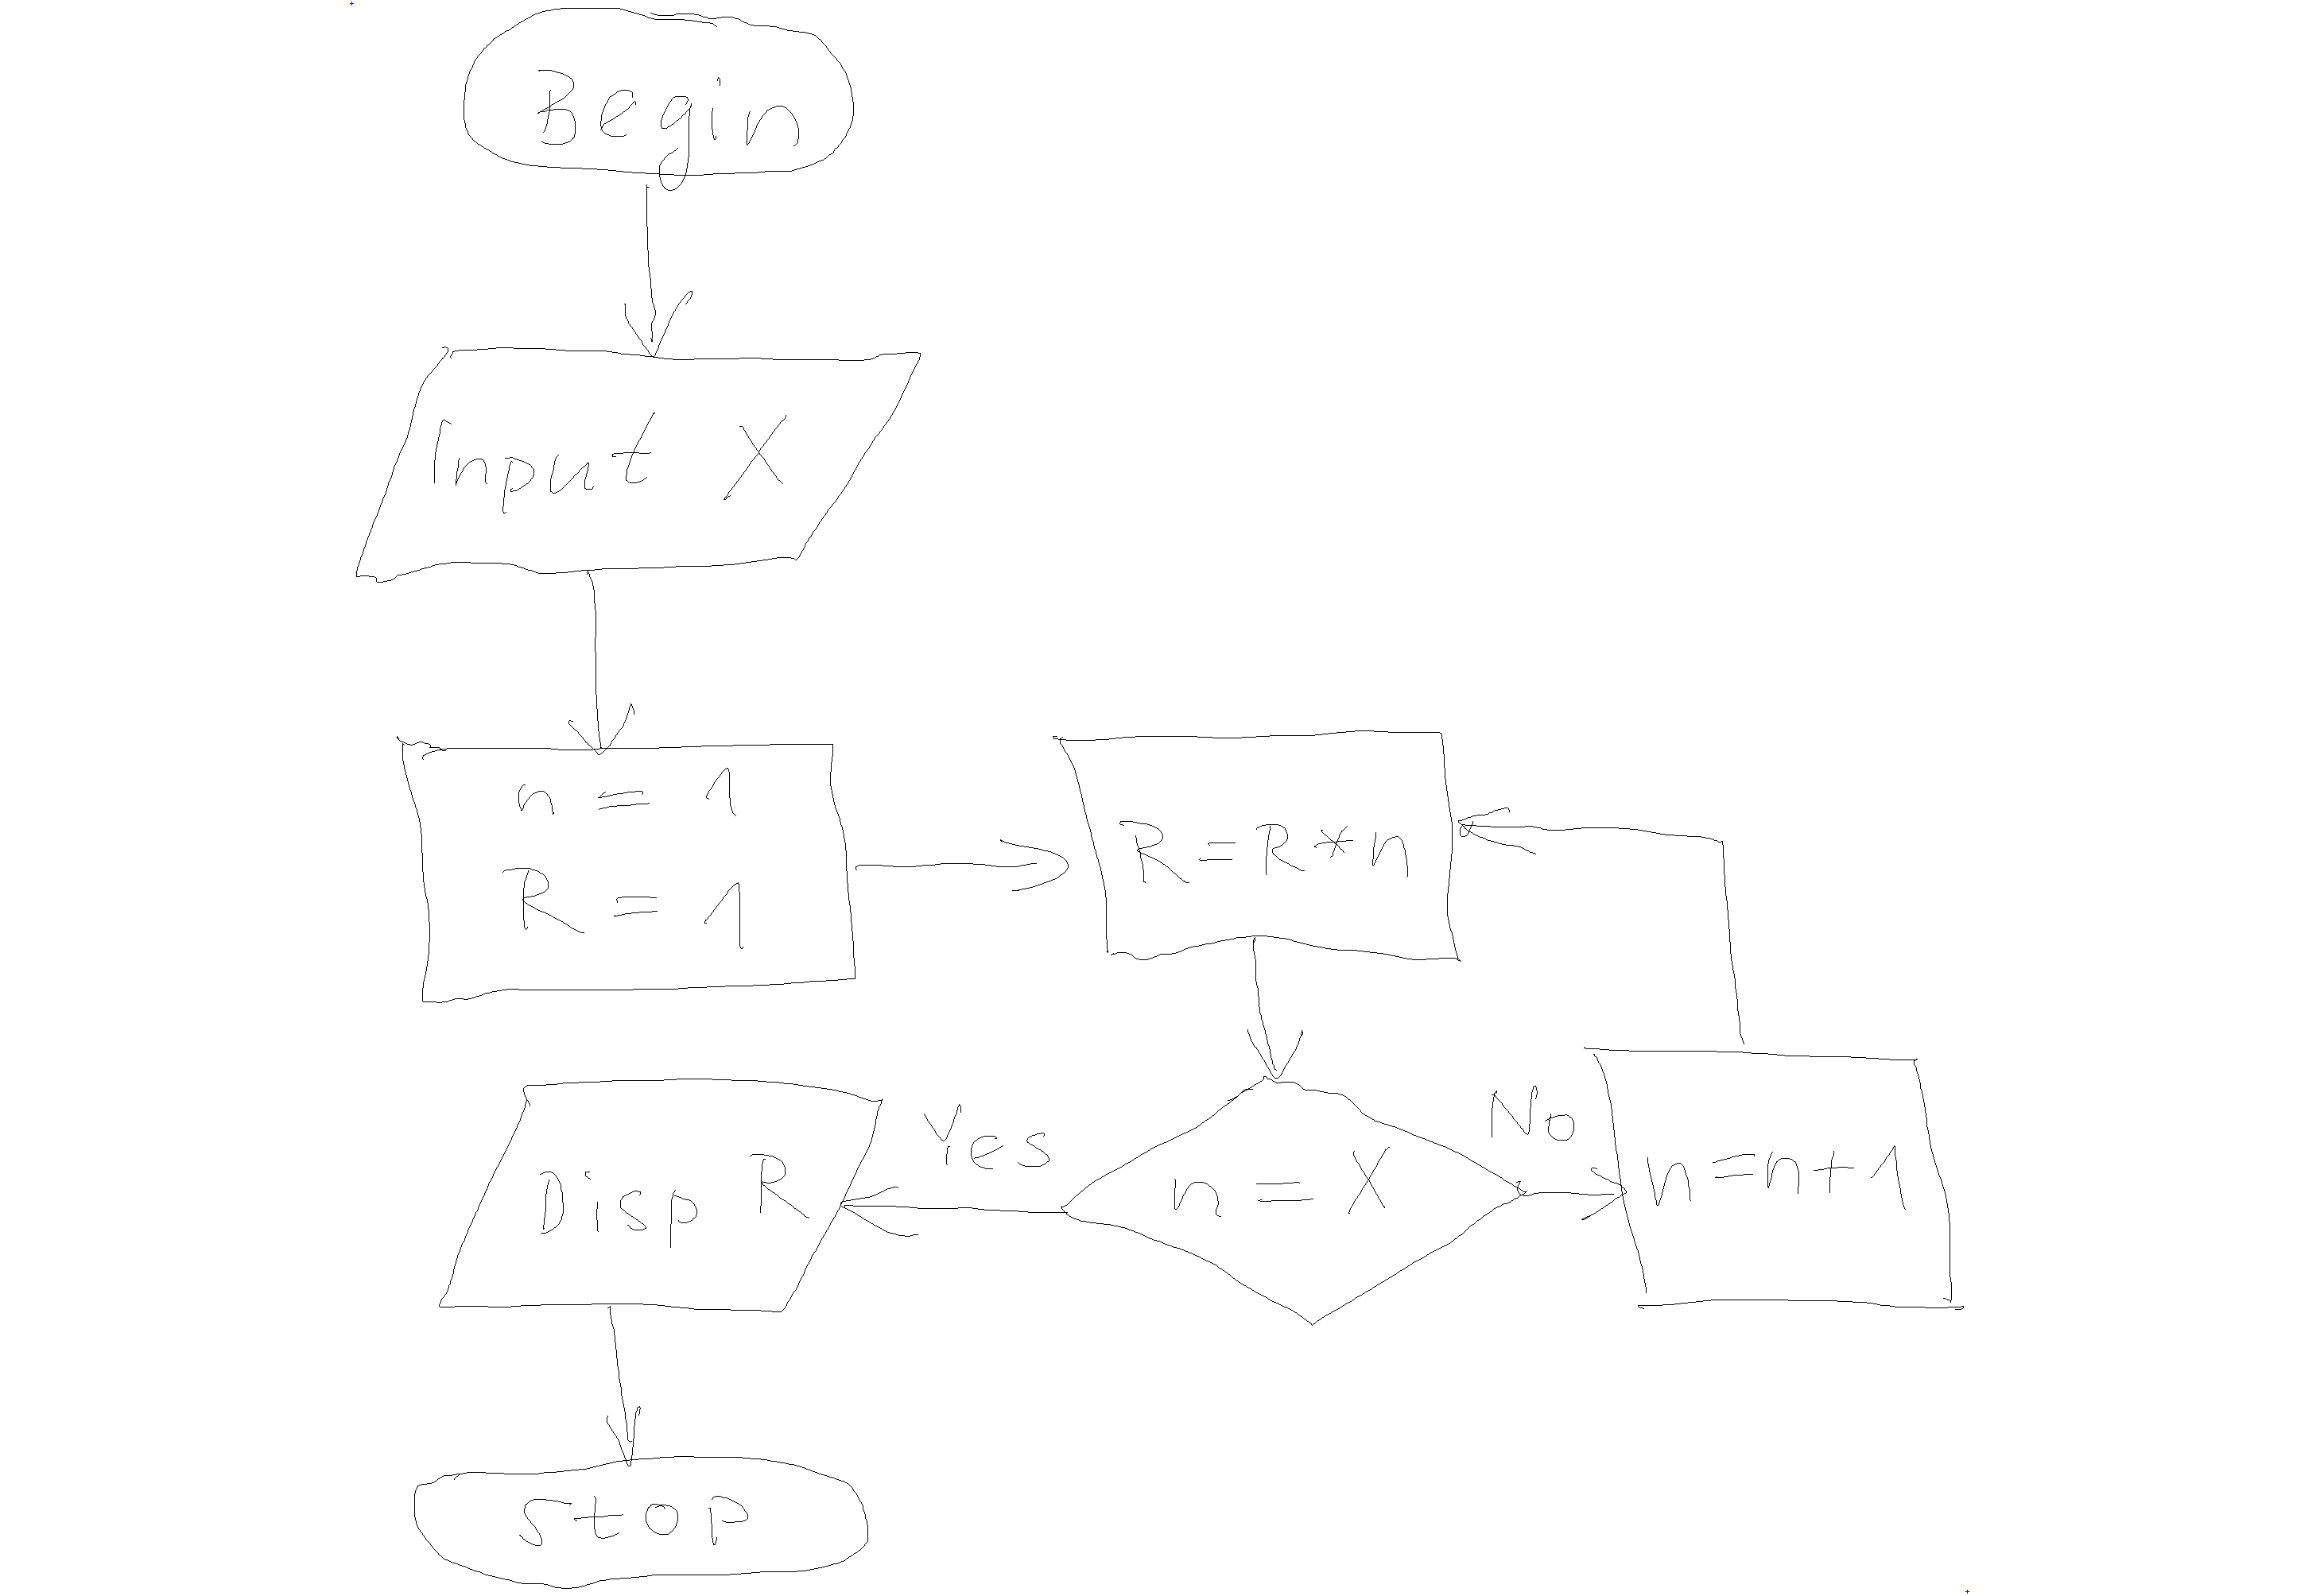 Begin
Input X
n = 1
R = 1
R=R*n
n = X
Yes
No
n=n+1
Disp R
Stop